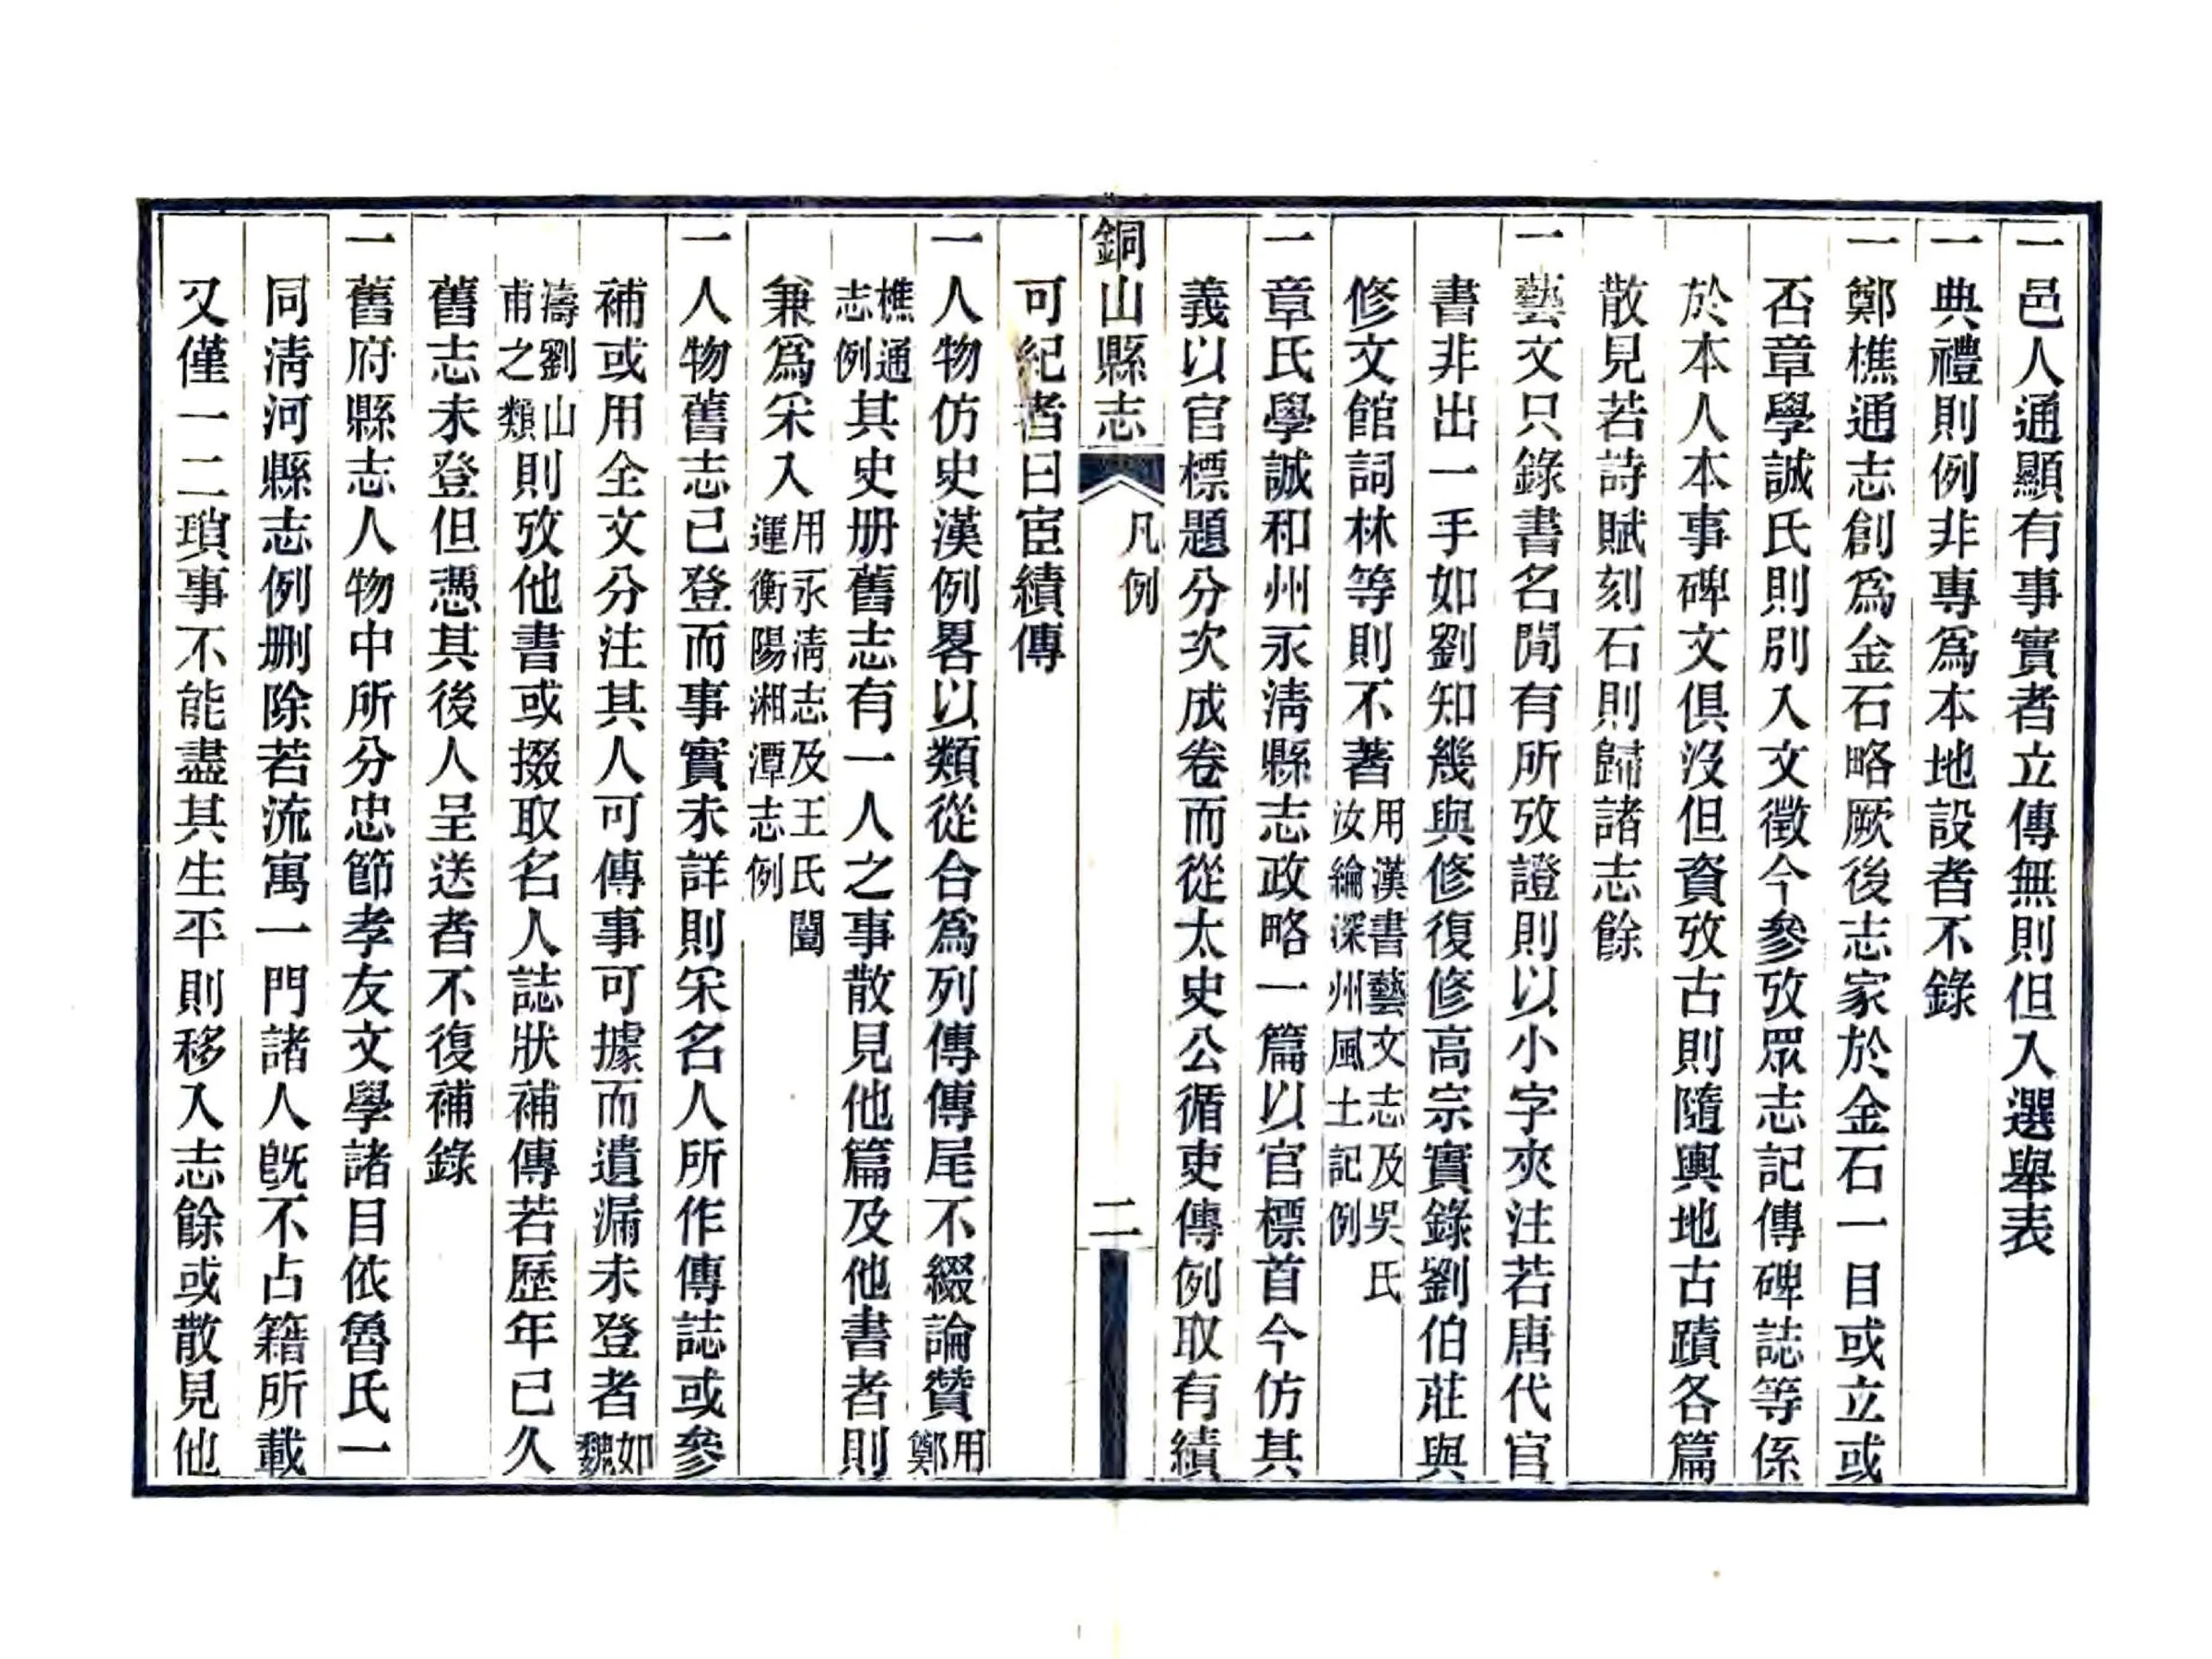 一邑人通顯有事實者立傳無則但入選舉表
一典禮則例非專爲本地設者不錄
一鄭樵通志創爲金石略厥後志家於金石一目或立或
否章學誠氏則別入文徵今參攷眾志記傳碑誌等係
於本人本事碑文俱沒但資攷古則隨輿地古蹟各篇
散見若詩賦刻石則歸諸志餘
一藝文只錄書名閒有所攷證則以小字夾注若唐代官
書非出一手如劉知幾與修復修高宗實錄劉伯莊與
修文館詞林等則不著用漢書藝文志及吳氏汝綸深州風土記例
一章氏學誠和州永淸縣志政略一篇以官標首今仿其
義以官標題分次成卷而從太史公循吏傳例取有績
銅山縣志 凡例 二
可紀者曰宦績傳
一人物仿史漢例畧以類從合爲列傳傳尾不綴論贊用鄭
樵通志例其史册舊志有一人之事散見他篇及他書者則
兼爲采入用永淸志及王氏闓運衡陽湘潭志例
一人物舊志已登而事實未詳則采名人所作傳誌或參
補或用全文分注其人可傳事可據而遺漏未登者如魏
濤劉山甫之類則攷他書或掇取名人誌狀補傳若歷年已久
舊志未登但憑其後人呈送者不復補錄
一舊府縣志人物中所分忠節孝友文學諸目依魯氏一
同淸河縣志例删除若流寓一門諸人旣不占籍所載
又僅一二瑣事不能盡其生平則移入志餘或散見他